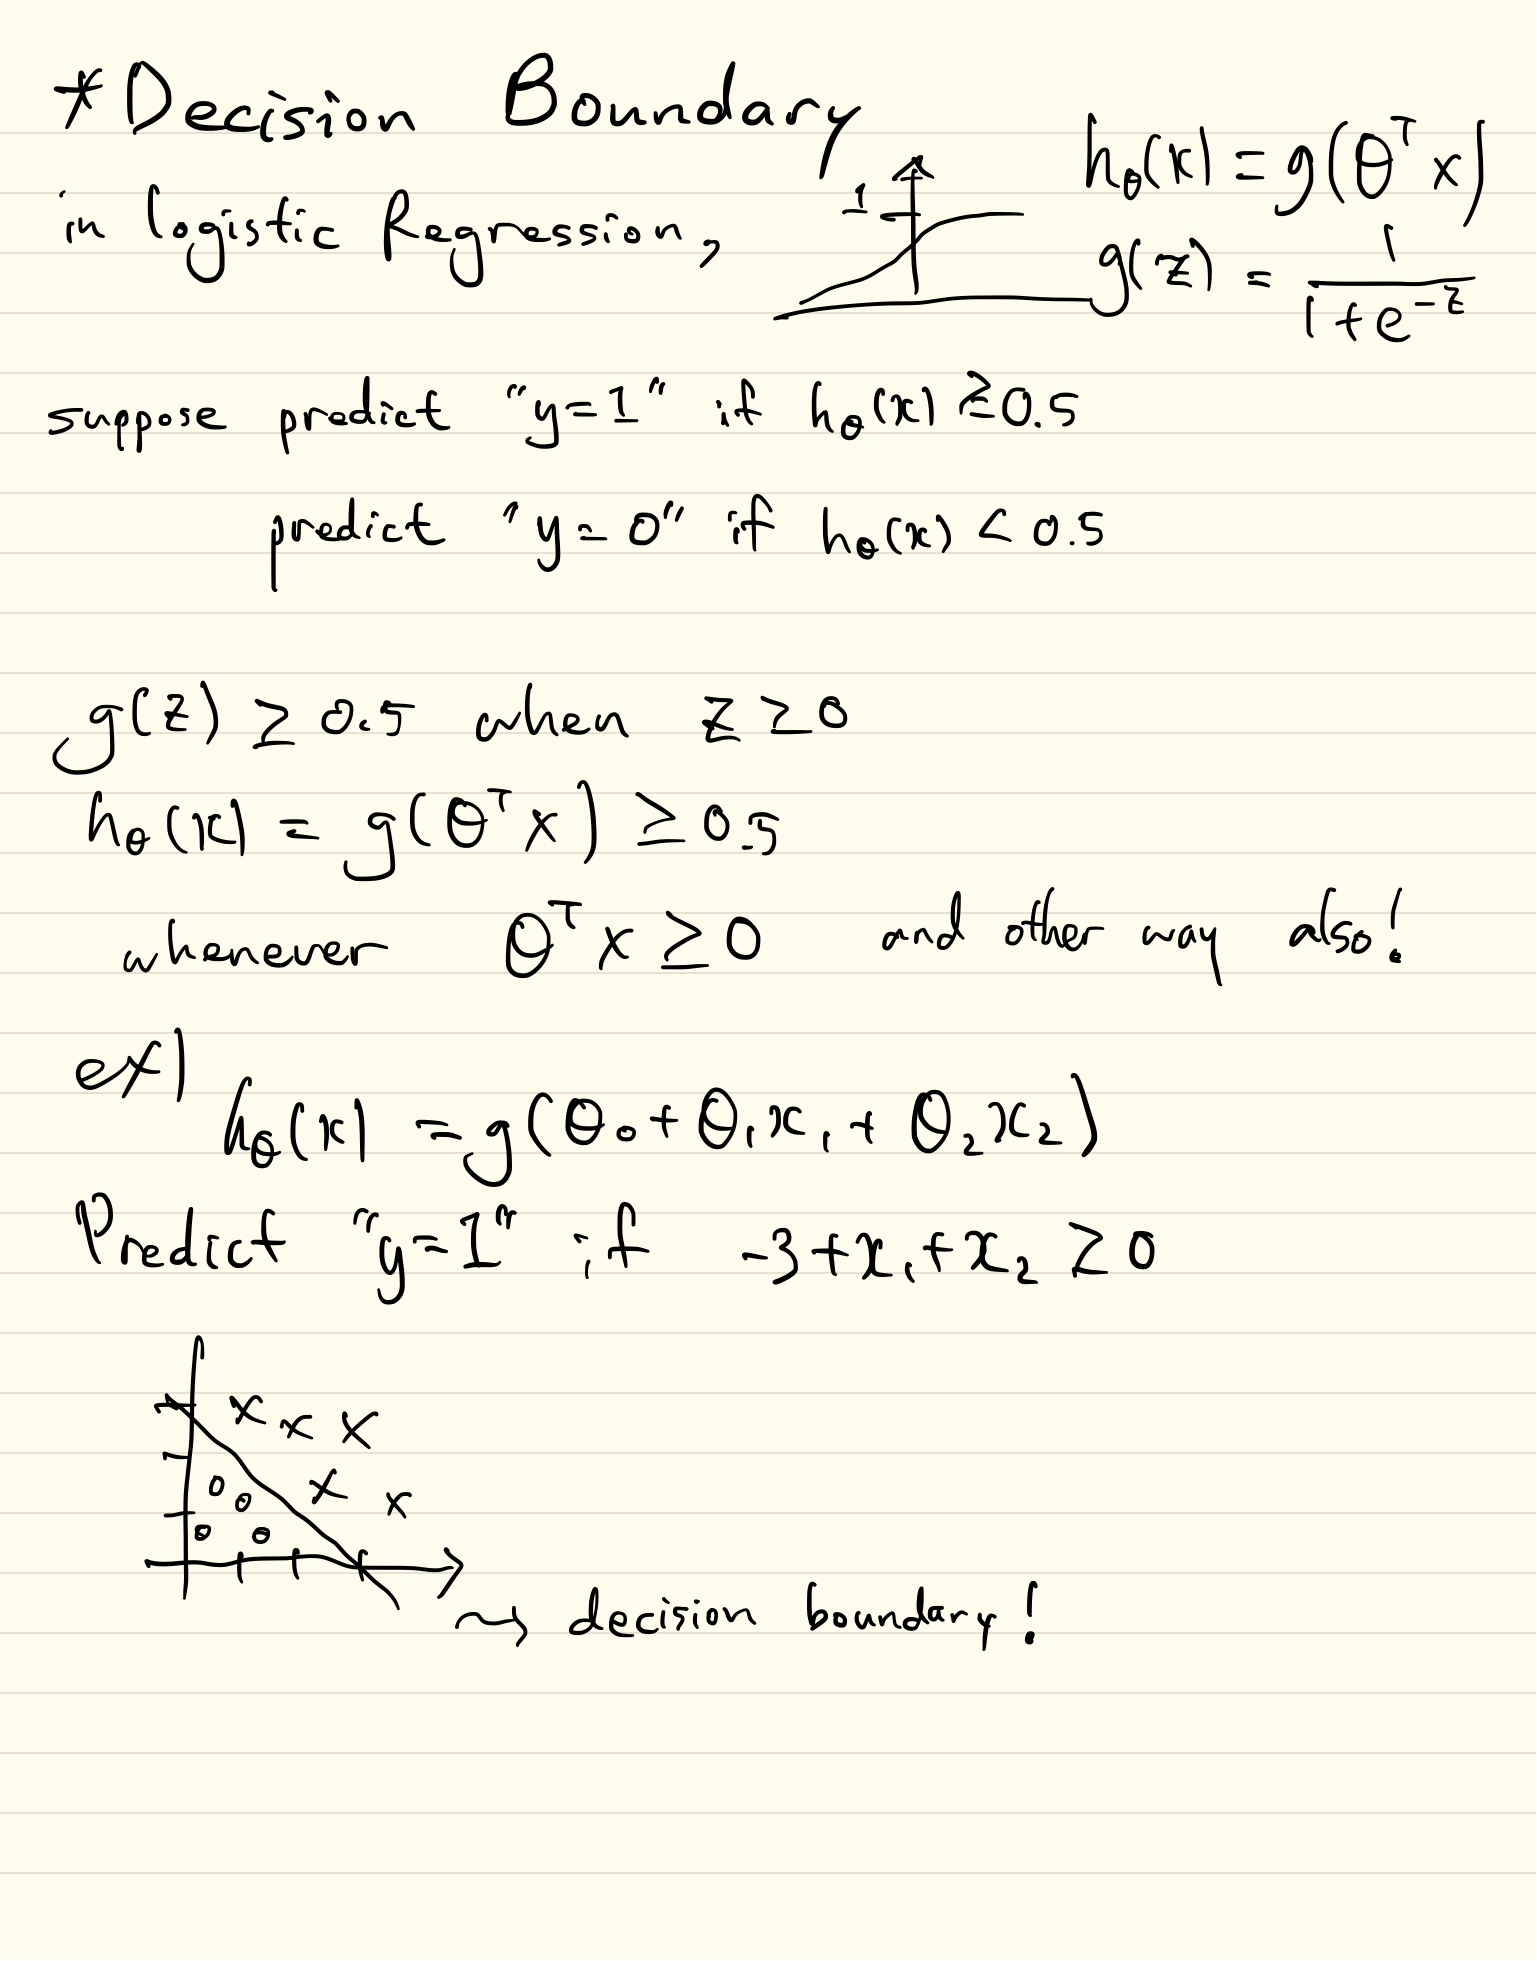 *Decision Boundary
in logistic Regression,
1
hθ(x) = g(θᵀx)
g(z) = 1/(1+e^-z)
suppose predict "y=1" if hθ(x) ≥0.5
predict "y=0" if hθ(x) < 0.5
g(z) ≥ 0.5 when z ≥ 0
hθ(x) = g(θᵀx) ≥ 0.5
whenever θᵀx ≥ 0 and other way also!
ex)
hθ(x) = g(θ₀ + θ₁x₁ + θ₂x₂)
Predict "y=1" if -3+x₁+x₂ ≥ 0
x x x
x x
o o
o o
→ decision boundary!